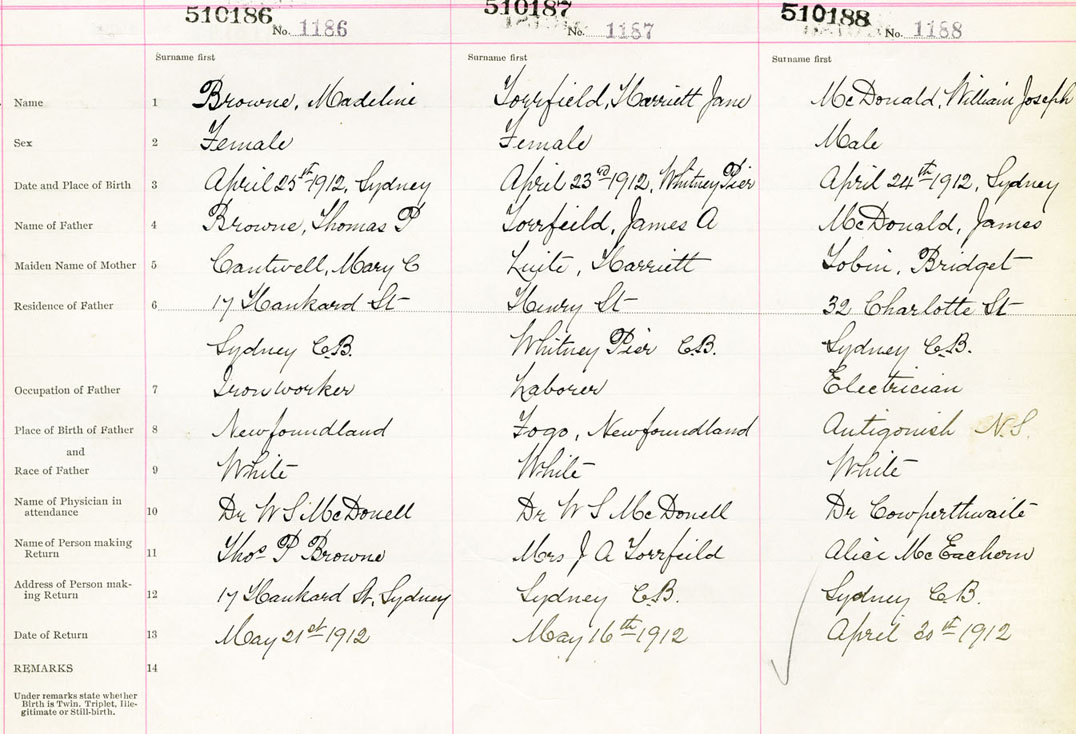 510186 510187 510188
No. 1186 No. 1187 No. 1188
Surname first Surname first Surname first
Name 1 Browne, Madeline Torrfield, Harriett Jane McDonald, William Joseph
Sex 2 Female Female Male
Date and Place of Birth 3 April 25th 1912, Sydney April 23rd 1912, Whitney Pier April 24th 1912, Sydney
Name of Father 4 Browne, Thomas P Torrfeild, James A McDonald, James
Maiden Name of Mother 5 Cantwell, Mary C Harriett Tobin, Bridget
Residence of Father 6 17 Hankard St Henry St 32 Charlotte St
Sydney C.B. Whitney Pier C.B. Sydney C.B.
Occupation of Father 7 Ironworker Laborer Electrician
Place of Birth of Father 8 Newfoundland Fogo, Newfoundland Antigonish N.S.
and
Race of Father 9 White White White
Name of Physician in
attendance 10 Dr W S McDonell Dr W S McDonell Dr Cowperthwaite
Name of Person making
Return 11 Thos P Browne Mrs J A Torrfeild Alice McEachern
Address of Person mak-
ing Return 12 17 Hankard St, Sydney Sydney C.B. Sydney C.B.
Date of Return 13 May 21st 1912 May 16th 1912 April 30th 1912
REMARKS 14
Under remarks state whether
Birth is Twin, Triplet, Ille-
gitimate or Still-birth.